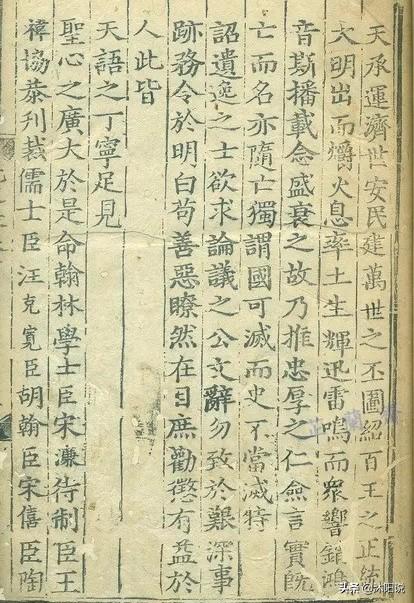 天承運濟世安民建萬世之丕圖紹百王之正統
大明出而爝火息率土生輝迅雷鳴而衆響銷鴻
音斯播載念盛衰之故乃推忠厚之仁僉言實旣
亡而名亦隨亡獨謂國可滅而史不當滅特
詔遺逸之士欲求論議之公文辭勿致於艱深事
跡務令於明白苟善惡瞭然在目庶勸懲有益於
人此皆
天語之丁寧足見
聖心之廣大於是命翰林學士臣宋濂待制臣王
禕協恭刋裁儒士臣汪克寬臣胡翰臣宋僖臣陶
头条 @沐阳说